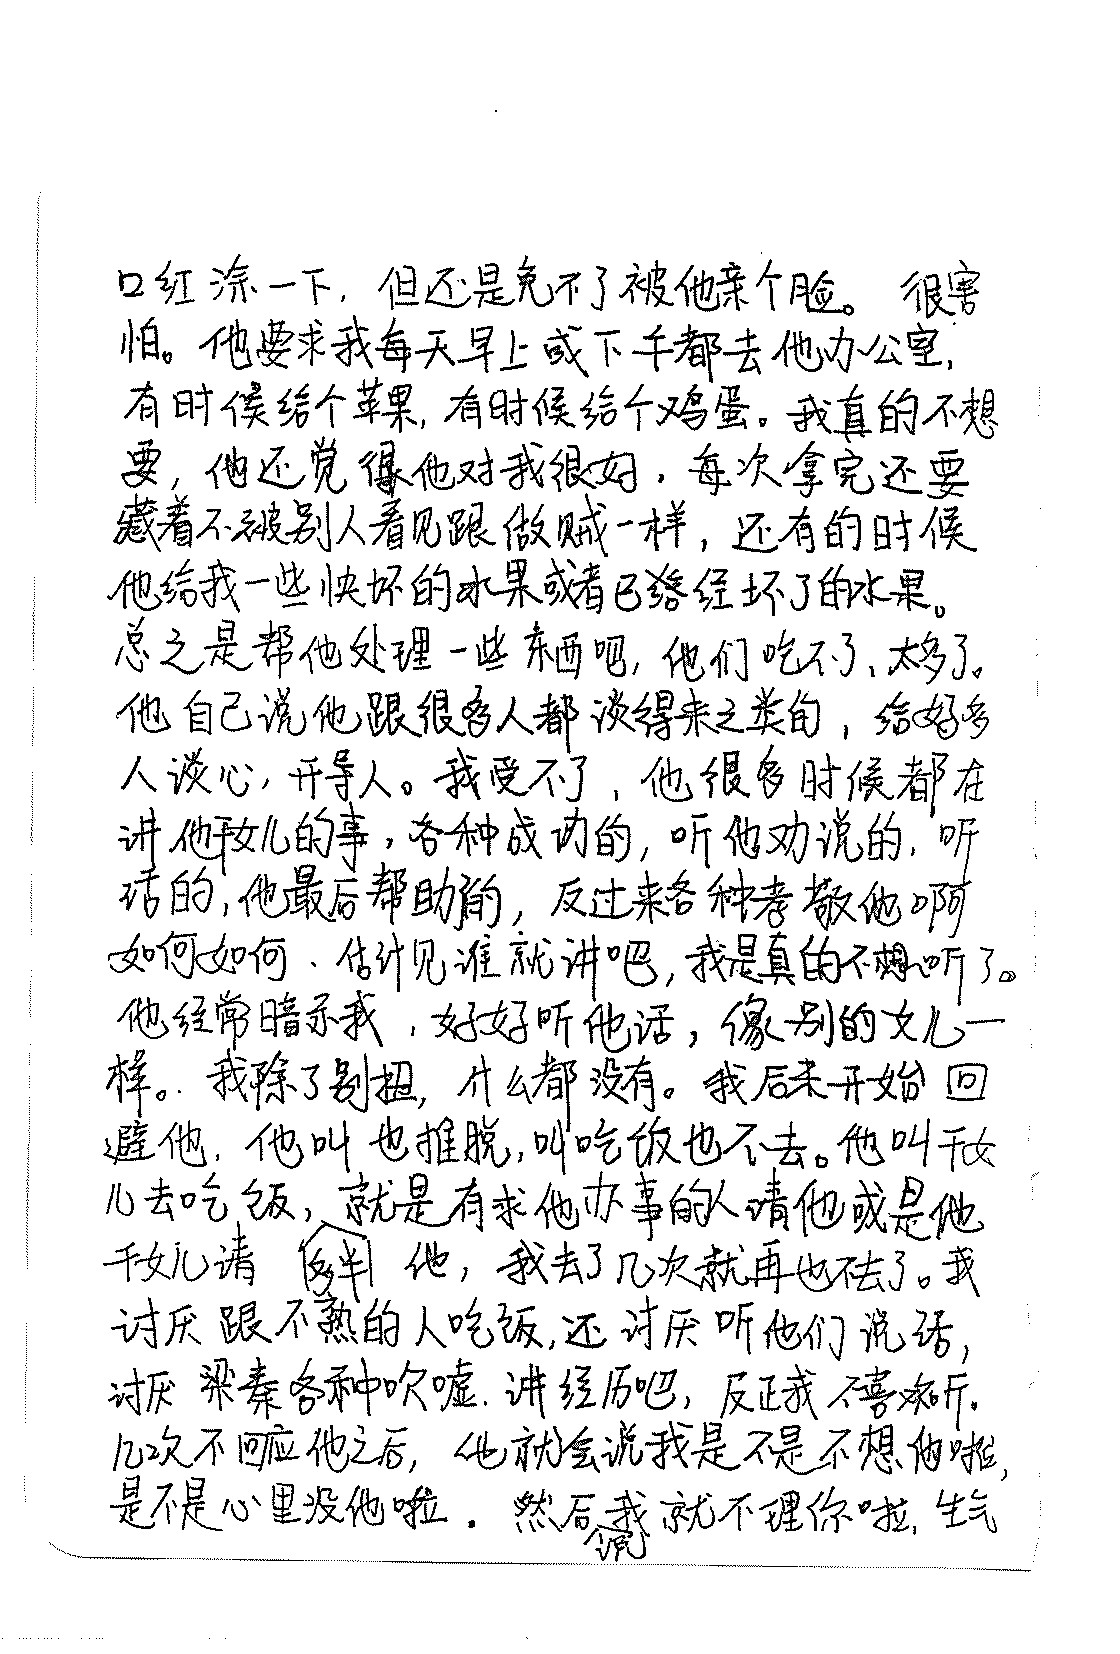 口红涂一下，但还是免不了被他亲个脸。很害
怕。他要求我每天早上或下午都去他办公室，
有时候给个苹果，有时候给个鸡蛋。我真的不想
要，他还觉得他对我很好，每次拿完还要
藏着不被别人看见跟做贼一样，还有的时候
他给我一些快坏的水果或者已经坏了的水果。
总之是帮他处理一些东西吧，他们吃不了、太多了。
他自己说他跟很多人都谈得来之类的，给好多
人谈心，开导人。我受不了，他很多时候都在
讲他干女儿的事，各种成功的，听他劝说的，听
话的，他最后帮助的，反过来各种孝敬他啊
如何如何、估计见谁就讲吧，我是真的不想听了。
他经常暗示我，好好听他话，像别的女儿一
样。我除了别扭，什么都没有。我后来开始回
避他，他叫也推脱，叫吃饭也不去。他叫干女
儿去吃饭，就是有求他办事的人请他或是他
干女儿请他，我去了几次就再也不去了。我
讨厌跟不熟的人吃饭，还讨厌听他们说话，
讨厌梁秦各种吹嘘、讲经历吧，反正我不喜欢听。
几次不回应他之后，他就会说我是不是不想他啦，
是不是心里没他啦。然后说我就不理你啦，生气